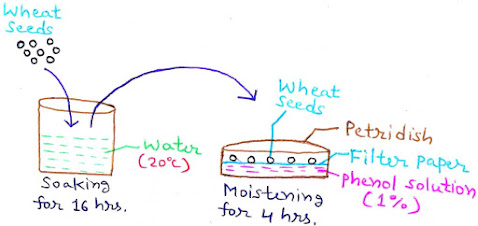 Wheat
Seeds
Water
(20°C)
Soaking
for 16 hrs.
Wheat
Seeds
Petridish
Filter paper
phenol solution
(1%)
Moistening
for 4 hrs.